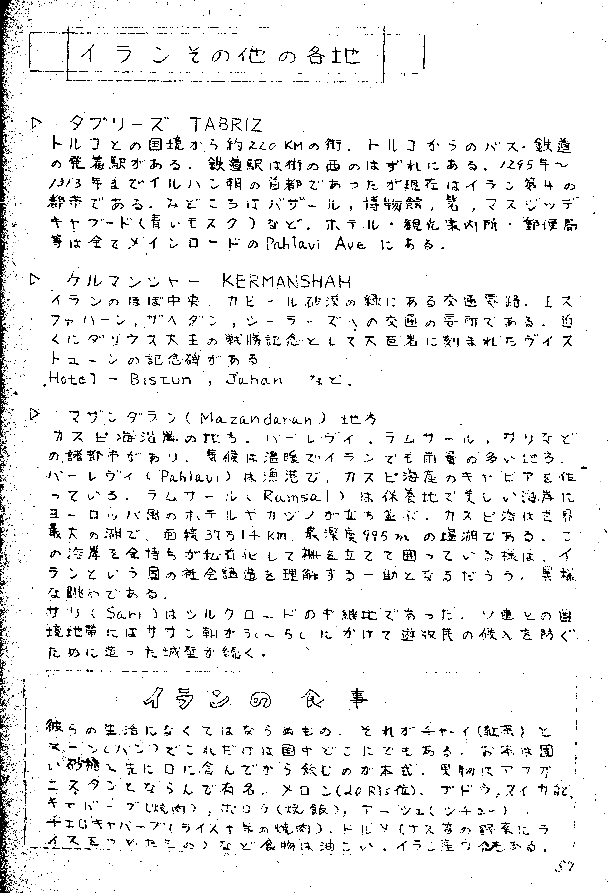 イランその他の各地
▷ タブリーズ TABRIZ
トルコとの国境から約220KMの街．トルコからのバス・鉄道
の発着駅がある．鉄道駅は街の西のはずれにある．1295年〜
1313年までイルハン朝の首都であったが現在はイラン第4の
都市である．みどころはバザール，博物館，，マスジッデ
キャブード(青いモスク)など．ホテル・観光案内所・郵便局
等は全てメインロードのPahlavi Aveにある．
▷ ケルマンシャー KERMANSHAH
イランのほぼ中央．カビール砂漠の縁にある交通要路．エス
ファハーン，ザヘダン，シーラーズへの交通の要所である．近
くにダリウス大王の戦勝記念として大巨岩に刻まれたヴィス
トゥーンの記念碑がある
Hotel - Bistun , Jahan など．
▷ マザンダラン(Mazandaran)地方
カスピ海沿岸の地方．パーレヴィ．ラムサール，サリなど
の諸都市があり，気候は温暖でイランでも雨量の多い地方．
パーレヴィ(Pahlavi)は漁港で，カスピ海産のキャビアを作
っている．ラムサール(Ramsal)は保養地で美しい海岸に
ヨーロッパ風のホテルやカジノが立ち並ぶ．カスピ海は世界
最大の湖で，面積37万1千KM，最深度995mの塩湖である．こ
の沿岸を金持ちが私有化して柵を立てて囲っている様は，イ
ランという国の社会構造を理解する一助となるだろう．異様
な眺めである．
サリ(Sari)はシルクロードの中継地であった．ソ連との国
境地帯にはササン朝から5C〜6Cにかけて遊牧民の侵入を防ぐ
ために造った城壁が続く．
イランの食事
彼らの生活になくてはならぬもの．それがチャーイ(紅茶)と
ヌーン(パン)でこれだけは国中どこにでもある．お茶は固
い砂糖を先に口に含んでから飲むのが本式．果物はアフガ
ニスタンとならんで有名．メロン(20Rls位)，ブドウ，スイカ etc
キャバーブ(焼肉)，ポロウ(焼飯)，(シチュー)．
チェロキャバーブ(ライス＋羊の焼肉)，ドルメ(ナス等の野菜にラ
イスをつめたもの)など食物は油こい．イラン産ある．
57